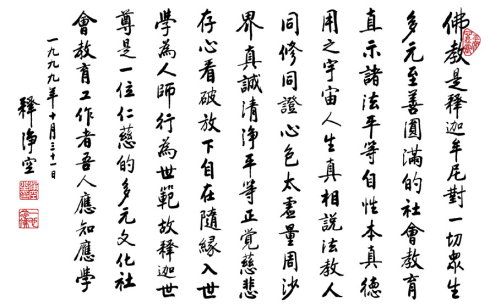 佛教是釋迦牟尼對一切眾生
多元至善圓滿的社會教育
直示諸法平等自性本真德
用之宇宙人生真相說法教人
同修同證心色太虛量周沙
界真誠清淨平等正覺慈悲
存心看破放下自在隨緣入世
學為人師行為世範故釋迦世
尊是一位仁慈的多元文化社
會教育工作者吾人應知應學
一九九九年十月三十一日
釋淨空